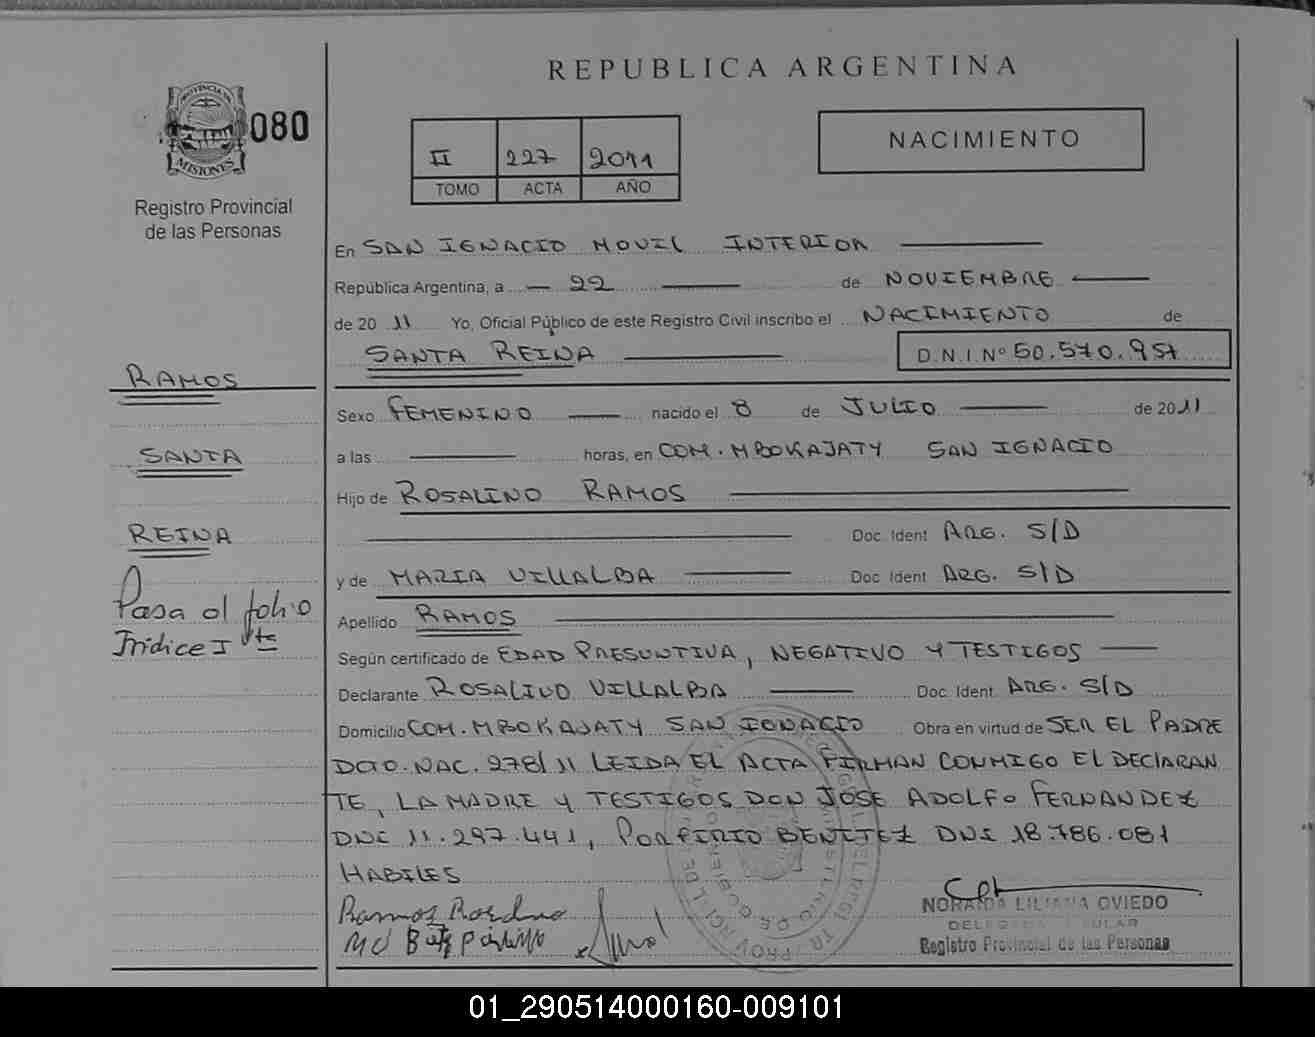 REPUBLICA ARGENTINA
PROVINCIA DE MISIONES
080
Registro Provincial
de las Personas
II 227 2011
TOMO ACTA AÑO
NACIMIENTO
En SAN IGNACIO MOVIL INTERIOR
República Argentina, a 22 de NOVIEMBRE
de 20 11 Yo, Oficial Público de este Registro Civil inscribo el NACIMIENTO de
SANTA REINA D.N.I. Nº 50.570.957
RAMOS
SANTA
REINA
Pasa al folio
Indice I Vta
Sexo FEMENINO nacido el 8 de JULIO de 2011
a las horas, en COM. MBOKAJATY SAN IGNACIO
Hijo de ROSALINO RAMOS
Doc. Ident ARG. S/D
y de MARIA VILLALBA Doc. Ident ARG. S/D
Apellido RAMOS
Según certificado de EDAD PRESUNTIVA, NEGATIVO Y TESTIGOS
Declarante ROSALINO VILLALBA Doc. Ident. ARG. S/D
Domicilio COM. MBOKAJATY SAN IGNACIO Obra en virtud de SER EL PADRE
DCTO. NAC. 278/11 LEIDA EL ACTA FIRMAN CONMIGO EL DECLARAN
TE, LA MADRE Y TESTIGOS DON JOSE ADOLFO FERNANDEZ
DNI 11.297.441, PORFIRIO BENITEZ DNI 18.786.081
HABILES
Ramos
NORAIDA LILIANA OVIEDO
DELEGADA TITULAR
Registro Provincial de las Personas
01_290514000160-009101